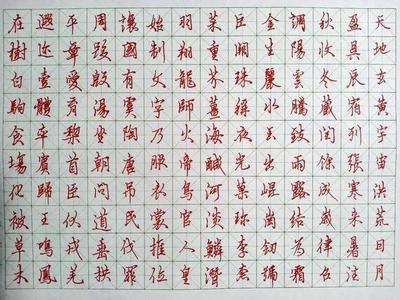 天地玄黄宇宙洪荒日月
盈昃辰宿列張寒来暑往
秋收冬藏闰馀成歲律吕
調陽雲騰致雨露结为霜
金生麗水玉出崐崗劒號
巨闕珠稱夜光菓珍李柰
菜重芥薑海鹹河淡鳞潛
羽翔龍師火帝鳥官人皇
始制文字乃服衣裳推位
讓國有虞陶唐吊民伐罪
周發殷湯坐朝問道垂拱
平章愛育黎首臣伏戎羌
遐迩壹體率賓歸王鳴鳳
在樹白駒食場化被草木